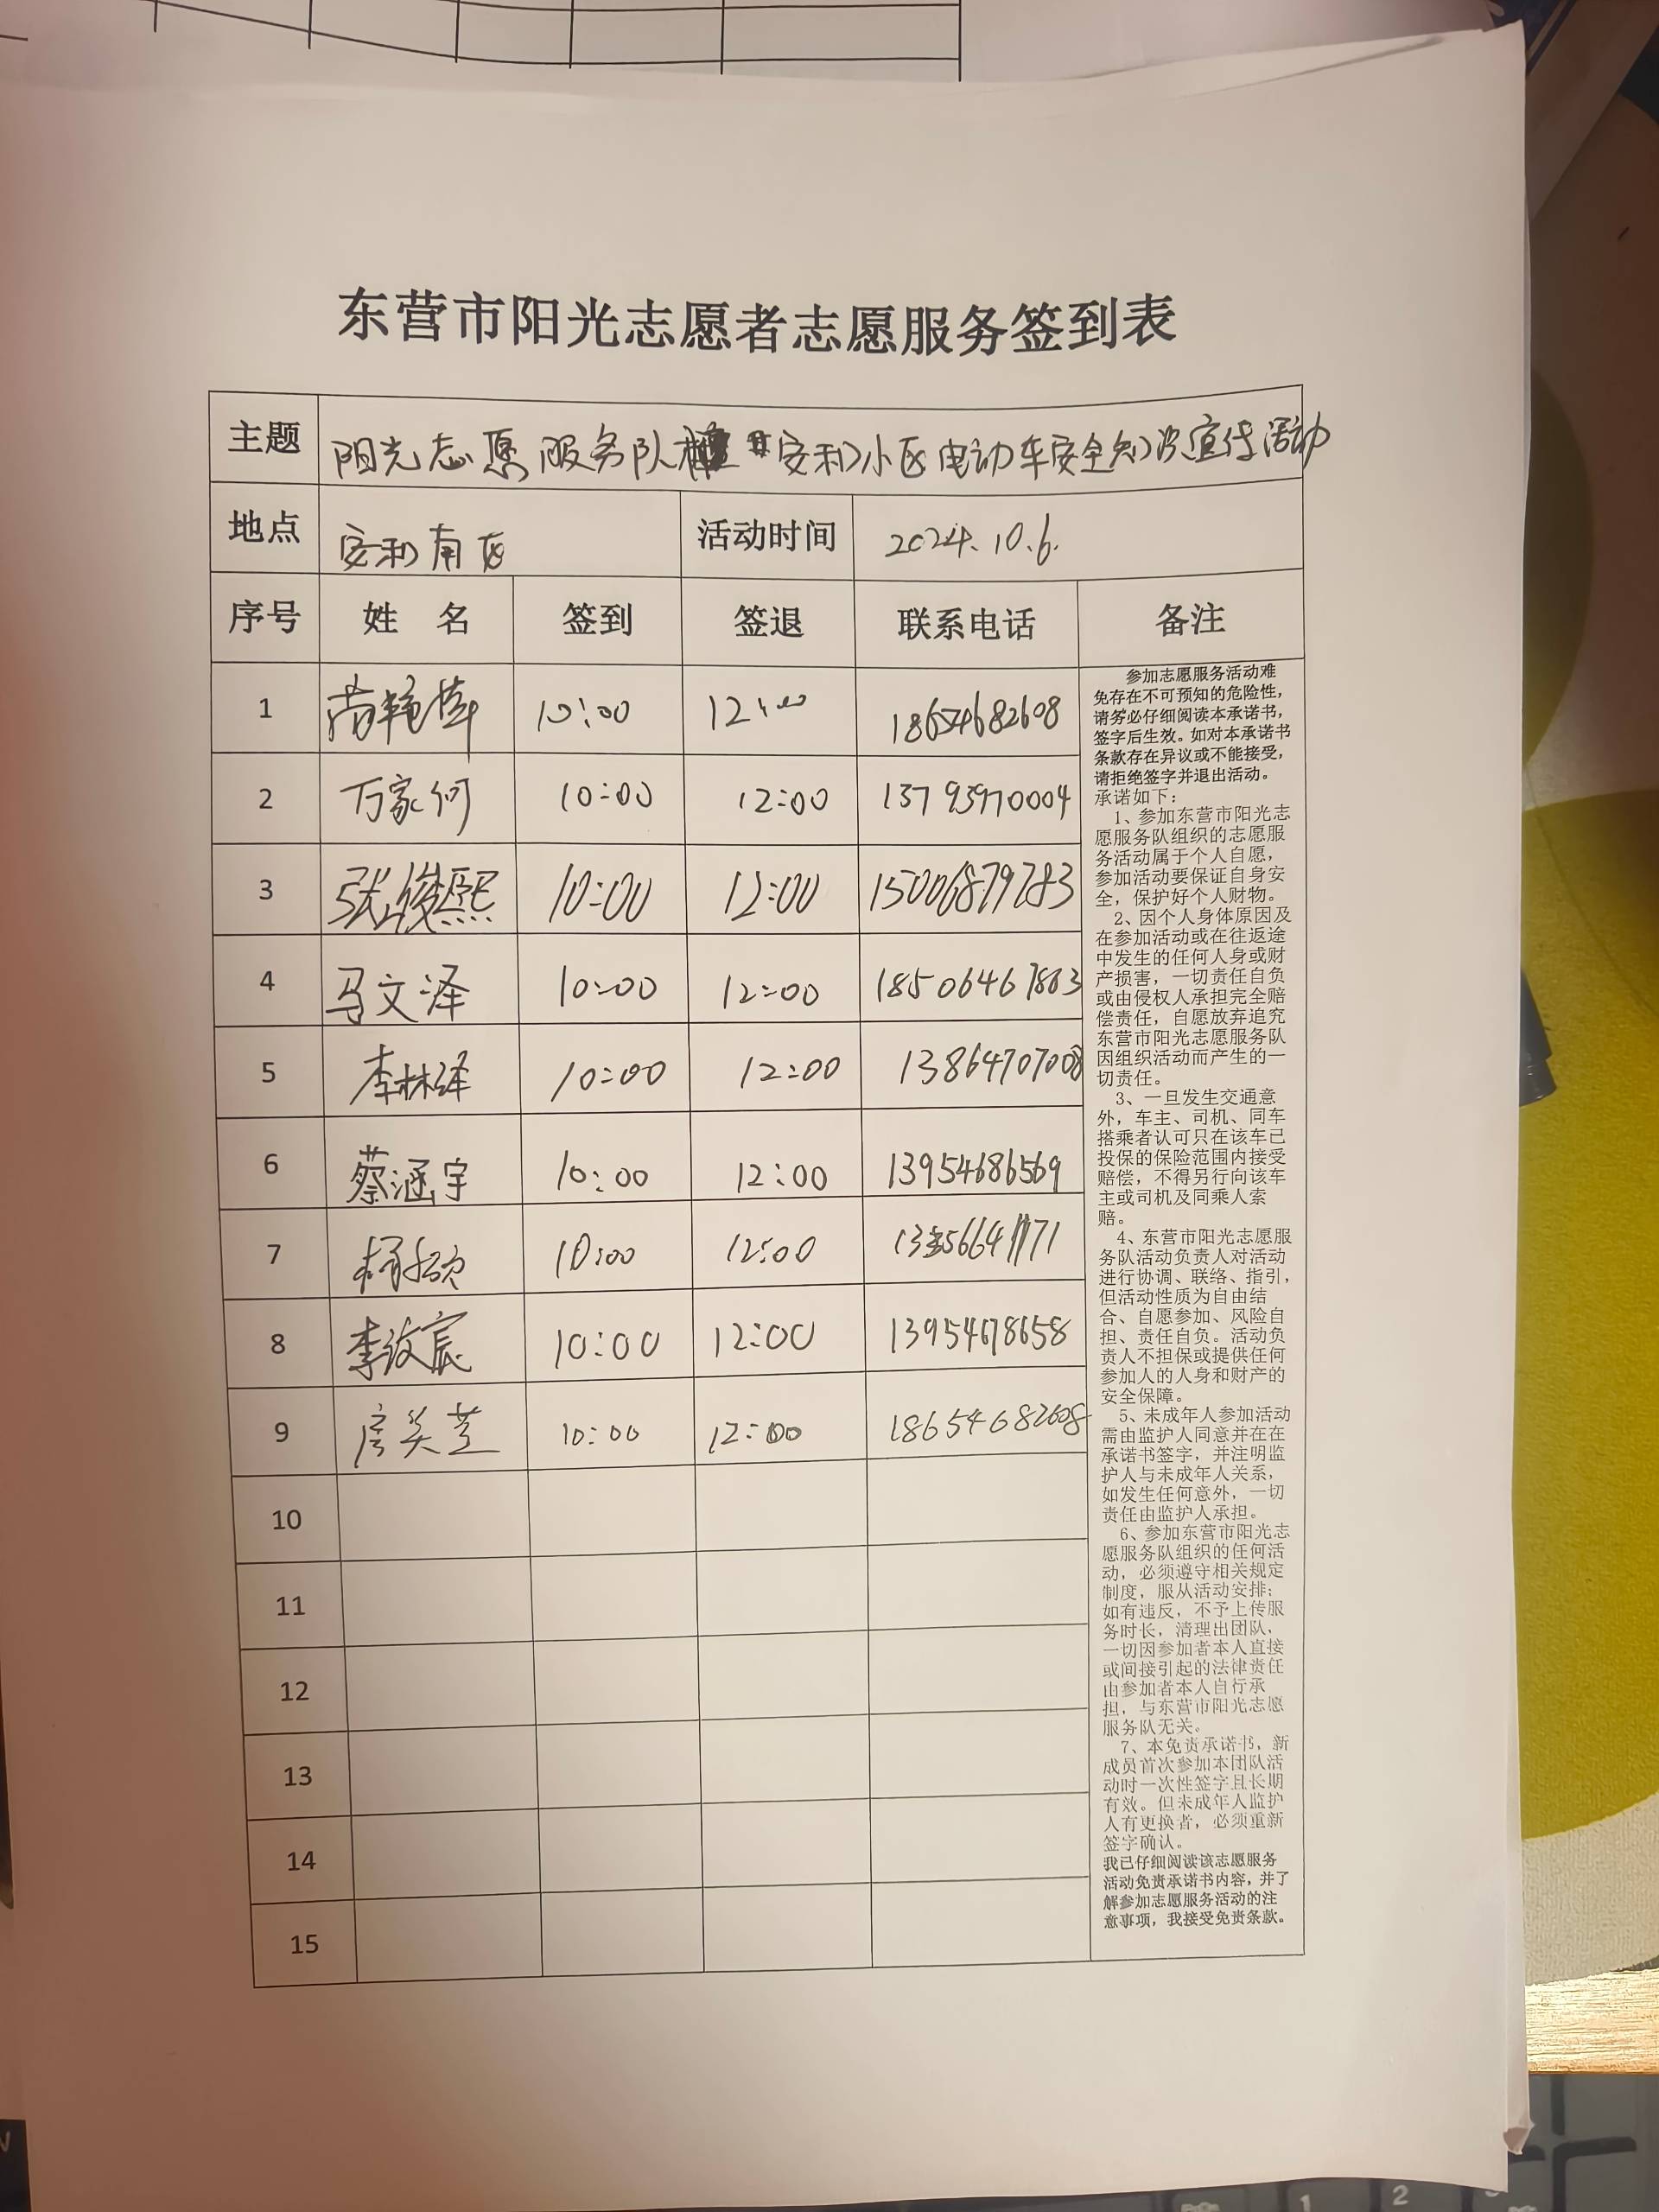 东营市阳光志愿者志愿服务签到表
主题 阳光志愿服务队 安利小区电动车安全知识宣传活动
地点 安利南区 活动时间 2024.10.6.
序号 姓 名 签到 签退 联系电话 备注
1 10:00 12:00 18654682608
2 万家何 10:00 12:00 13793970004
3 张俊熙 10:00 12:00 15006879783
4 马文泽 10:00 12:00 18506467863
5 李林泽 10:00 12:00 13864707008
6 蔡涵宇 10:00 12:00 13954686569
7 10:00 12:00
8 李汶宸 10:00 12:00 13954678658
9 房美芝 10:00 12:00 18654682608
10
11
12
13
14
15
参加志愿服务活动难
免存在不可预知的危险性，
请务必仔细阅读本承诺书，
签字后生效。如对本承诺书
条款存在异议或不能接受，
请拒绝签字并退出活动。
承诺如下：
1、参加东营市阳光志
愿服务队组织的志愿服
务活动属于个人自愿，
参加活动要保证自身安
全，保护好个人财物。
2、因个人身体原因及
在参加活动或在往返途
中发生的任何人身或财
产损害，一切责任自负
或由侵权人承担完全赔
偿责任，自愿放弃追究
东营市阳光志愿服务队
因组织活动而产生的一
切责任。
3、一旦发生交通意
外，车主、司机、同车
搭乘者认可只在该车已
投保的保险范围内接受
赔偿，不得另行向该车
主或司机及同乘人索
赔。
4、东营市阳光志愿服
务队活动负责人对活动
进行协调、联络、指引，
但活动性质为自由结
合、自愿参加、风险自
担、责任自负。活动负
责人不担保或提供任何
参加人的人身和财产的
安全保障。
5、未成年人参加活动
需由监护人同意并在在
承诺书签字，并注明监
护人与未成年人关系，
如发生任何意外，一切
责任由监护人承担。
6、参加东营市阳光志
愿服务队组织的任何活
动，必须遵守相关规定
制度，服从活动安排；
如有违反，不予上传服
务时长，清理出团队，
一切因参加者本人直接
或间接引起的法律责任
由参加者本人自行承
担，与东营市阳光志愿
服务队无关。
7、本免责承诺书，新
成员首次参加本团队活
动时一次性签字且长期
有效。但未成年人监护
人有更换者，必须重新
签字确认。
我已仔细阅读该志愿服务
活动免责承诺书内容，并了
解参加志愿服务活动的注
意事项，我接受免责条款。